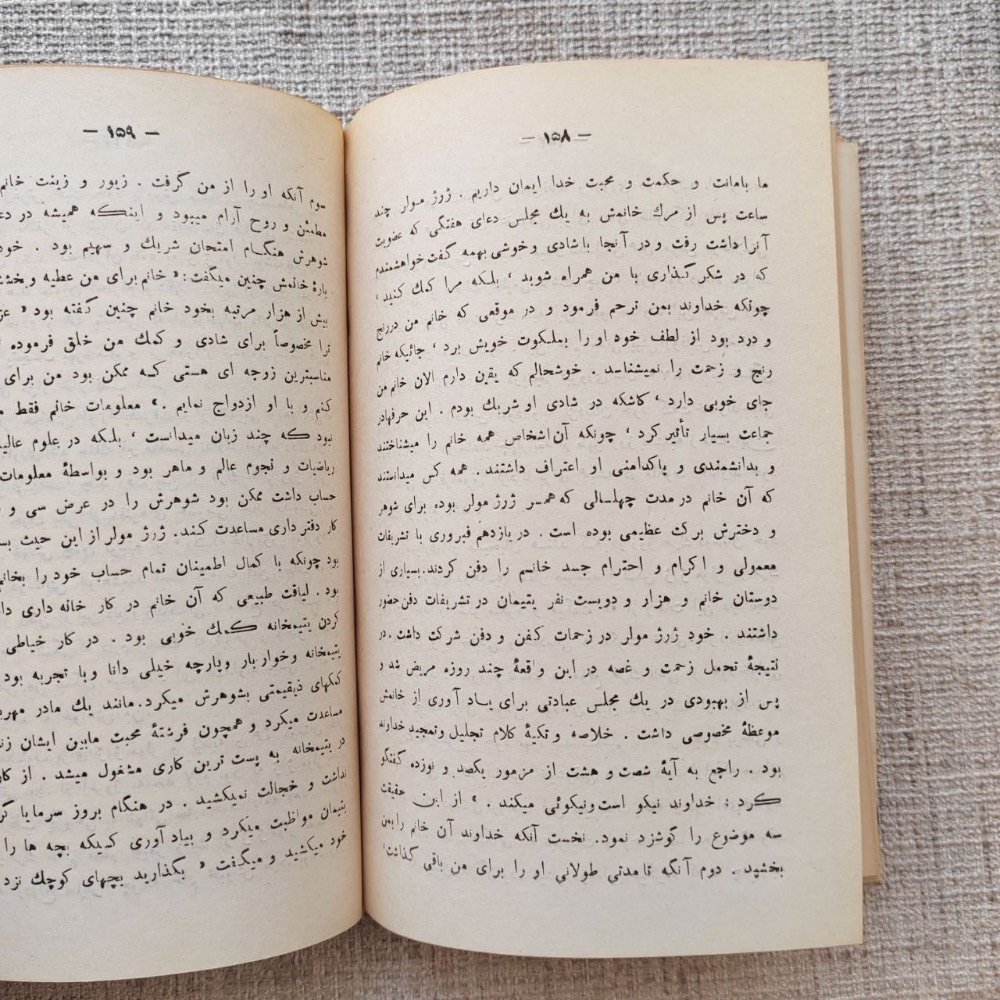 — ۱۵۸ —
ما بامانت و حکمت و محبت خدا ایمان داریم . ژرژ مولر چند
ساعت پس از مرك خانمش به یك مجلس دعای هفتگی که عضویت
آنرا داشت رفت و در آنجا با شادی و خوشی بهمه گفت خواهشمندم
که در شکر گذاری با من همراه شوید ، بلکه مرا کمك کنید ،
چونکه خداوند بمن ترحم فرمود و در موقعی که خانم من دررنج
و درد بود از لطف خود او را بملکوت خویش برد ، جائیکه خانم
رنج و زحمت را نمیشناسد . خوشحالم که یقین دارم الان خانم من
جای خوبی دارد ، کاشکه در شادی او شریك بودم . این حرفهادر
جماعت بسیار تأثیر کرد ، چونکه آن اشخاص همه خانم را میشناختند
و بدانشمندی و پاکدامنی او اعتراف داشتند . همه کس میدانستند
که آن خانم در مدت چهلسالی که همسر ژرژ مولر بوده برای شوهر
و دخترش برکت عظیمی بوده است . در یازدهم فیروری با تشریفات
معمولی و اکرام و احترام جسد خانم را دفن کردند.بسیاری از
دوستان خانم و هزار و دویست نفر یتیمان در تشریفات دفن حضور
داشتند . خود ژرژ مولر در زحمات کفن و دفن شرکت داشت . در
نتیجهٔ تحمل زحمت و غصه در این واقعهٔ چند روزه مریض شد و
پس از بهبودی در یك مجلس عبادتی برای یاد آوری از خانمش
موعظهٔ مخصوصی داشت . خلاصه و تکیهٔ کلام تجلیل و تمجید خداوند
بود . راجع به آیهٔ شصت و هشت از مزمور یکصد و نوزده گفتگو
کرد : خداوند نیکو است ونیکوئی میکند . » از این حقیقت
سه موضوع را گوشزد نمود. نخست آنکه خداوند آن خانم را بمن
بخشید . دوم آنکه تامدتی طولانی او را برای من باقی گذاشت،
— ۱۵۹ —
سوم آنکه او را از من گرفت . زیور و زینت خانم
مطمئن و روح آرام میبود و اینکه همیشه در
شوهرش هنگام امتحان شریك و سهیم بود . خود
بارهٔ خانمش چنین میگفت: « خانم برای من عطیه و
بیش از هزار مرتبه بخود خانم چنین گفته بود «
ترا مخصوصاً برای شادی و کمك من خلق فرموده
مناسبترین زوجه ای هستی که ممکن بود من برای
کنم و با او ازدواج نمایم . » معلومات خانم فقط
نبود که چند زبان میدانست ، بلکه در علوم
ریاضیات و نجوم عالم و ماهر بود و بواسطهٔ معلومات
حساب داشت ممکن بود شوهرش را در عرض سی و
کار دفتر داری مساعدت کند. ژرژ مولر از این حیث
بود چونکه با کمال اطمینان تمام حساب خود را
بود . لیاقت طبیعی که آن خانم در کار خانه داری
کردن یتیمخانه کمك خوبی بود . در کار خیاطی
یتیمخانه و خواربار وپارچه خیلی دانا وبا تجربه بود
کمکهای ذیقیمتی بشوهرش میکرد.مانند یك مادر
مساعدت میکرد و همچون فرشتهٔ محبت مابین ایشان
در یتیمخانه به پست ترین کاری مشغول میشد . از
نداشت و خجالت نمیکشید . در هنگام بروز سرمایا
یتیمان مواظبت میکرد و بیاد آوری کسیکه بچه ها را
خود میکشید و میگفت « بگذارید بچهای کوچك نزد